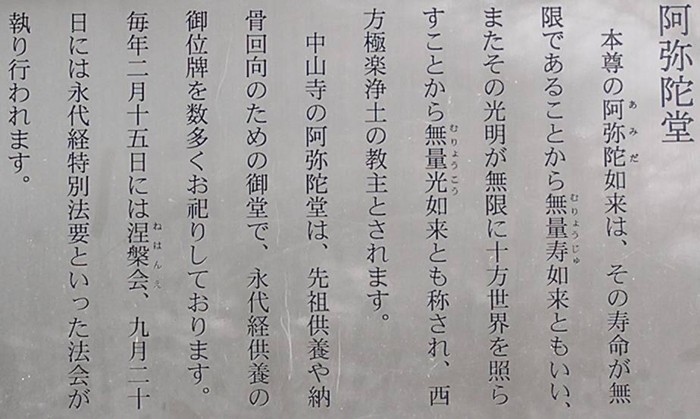 阿弥陀堂
本尊の阿弥陀如来は、その寿命が無
限であることから無量寿如来ともいい、
またその光明が無限に十方世界を照ら
すことから無量光如来とも称され、西
方極楽浄土の教主とされます。
中山寺の阿弥陀堂は、先祖供養や納
骨回向のための御堂で、永代経供養の
御位牌を数多くお祀りしております。
毎年二月十五日には涅槃会、九月二十
日には永代経特別法要といった法会が
執り行われます。
あみだ
むりょうじゅ
むりょうこう
ねはんえ